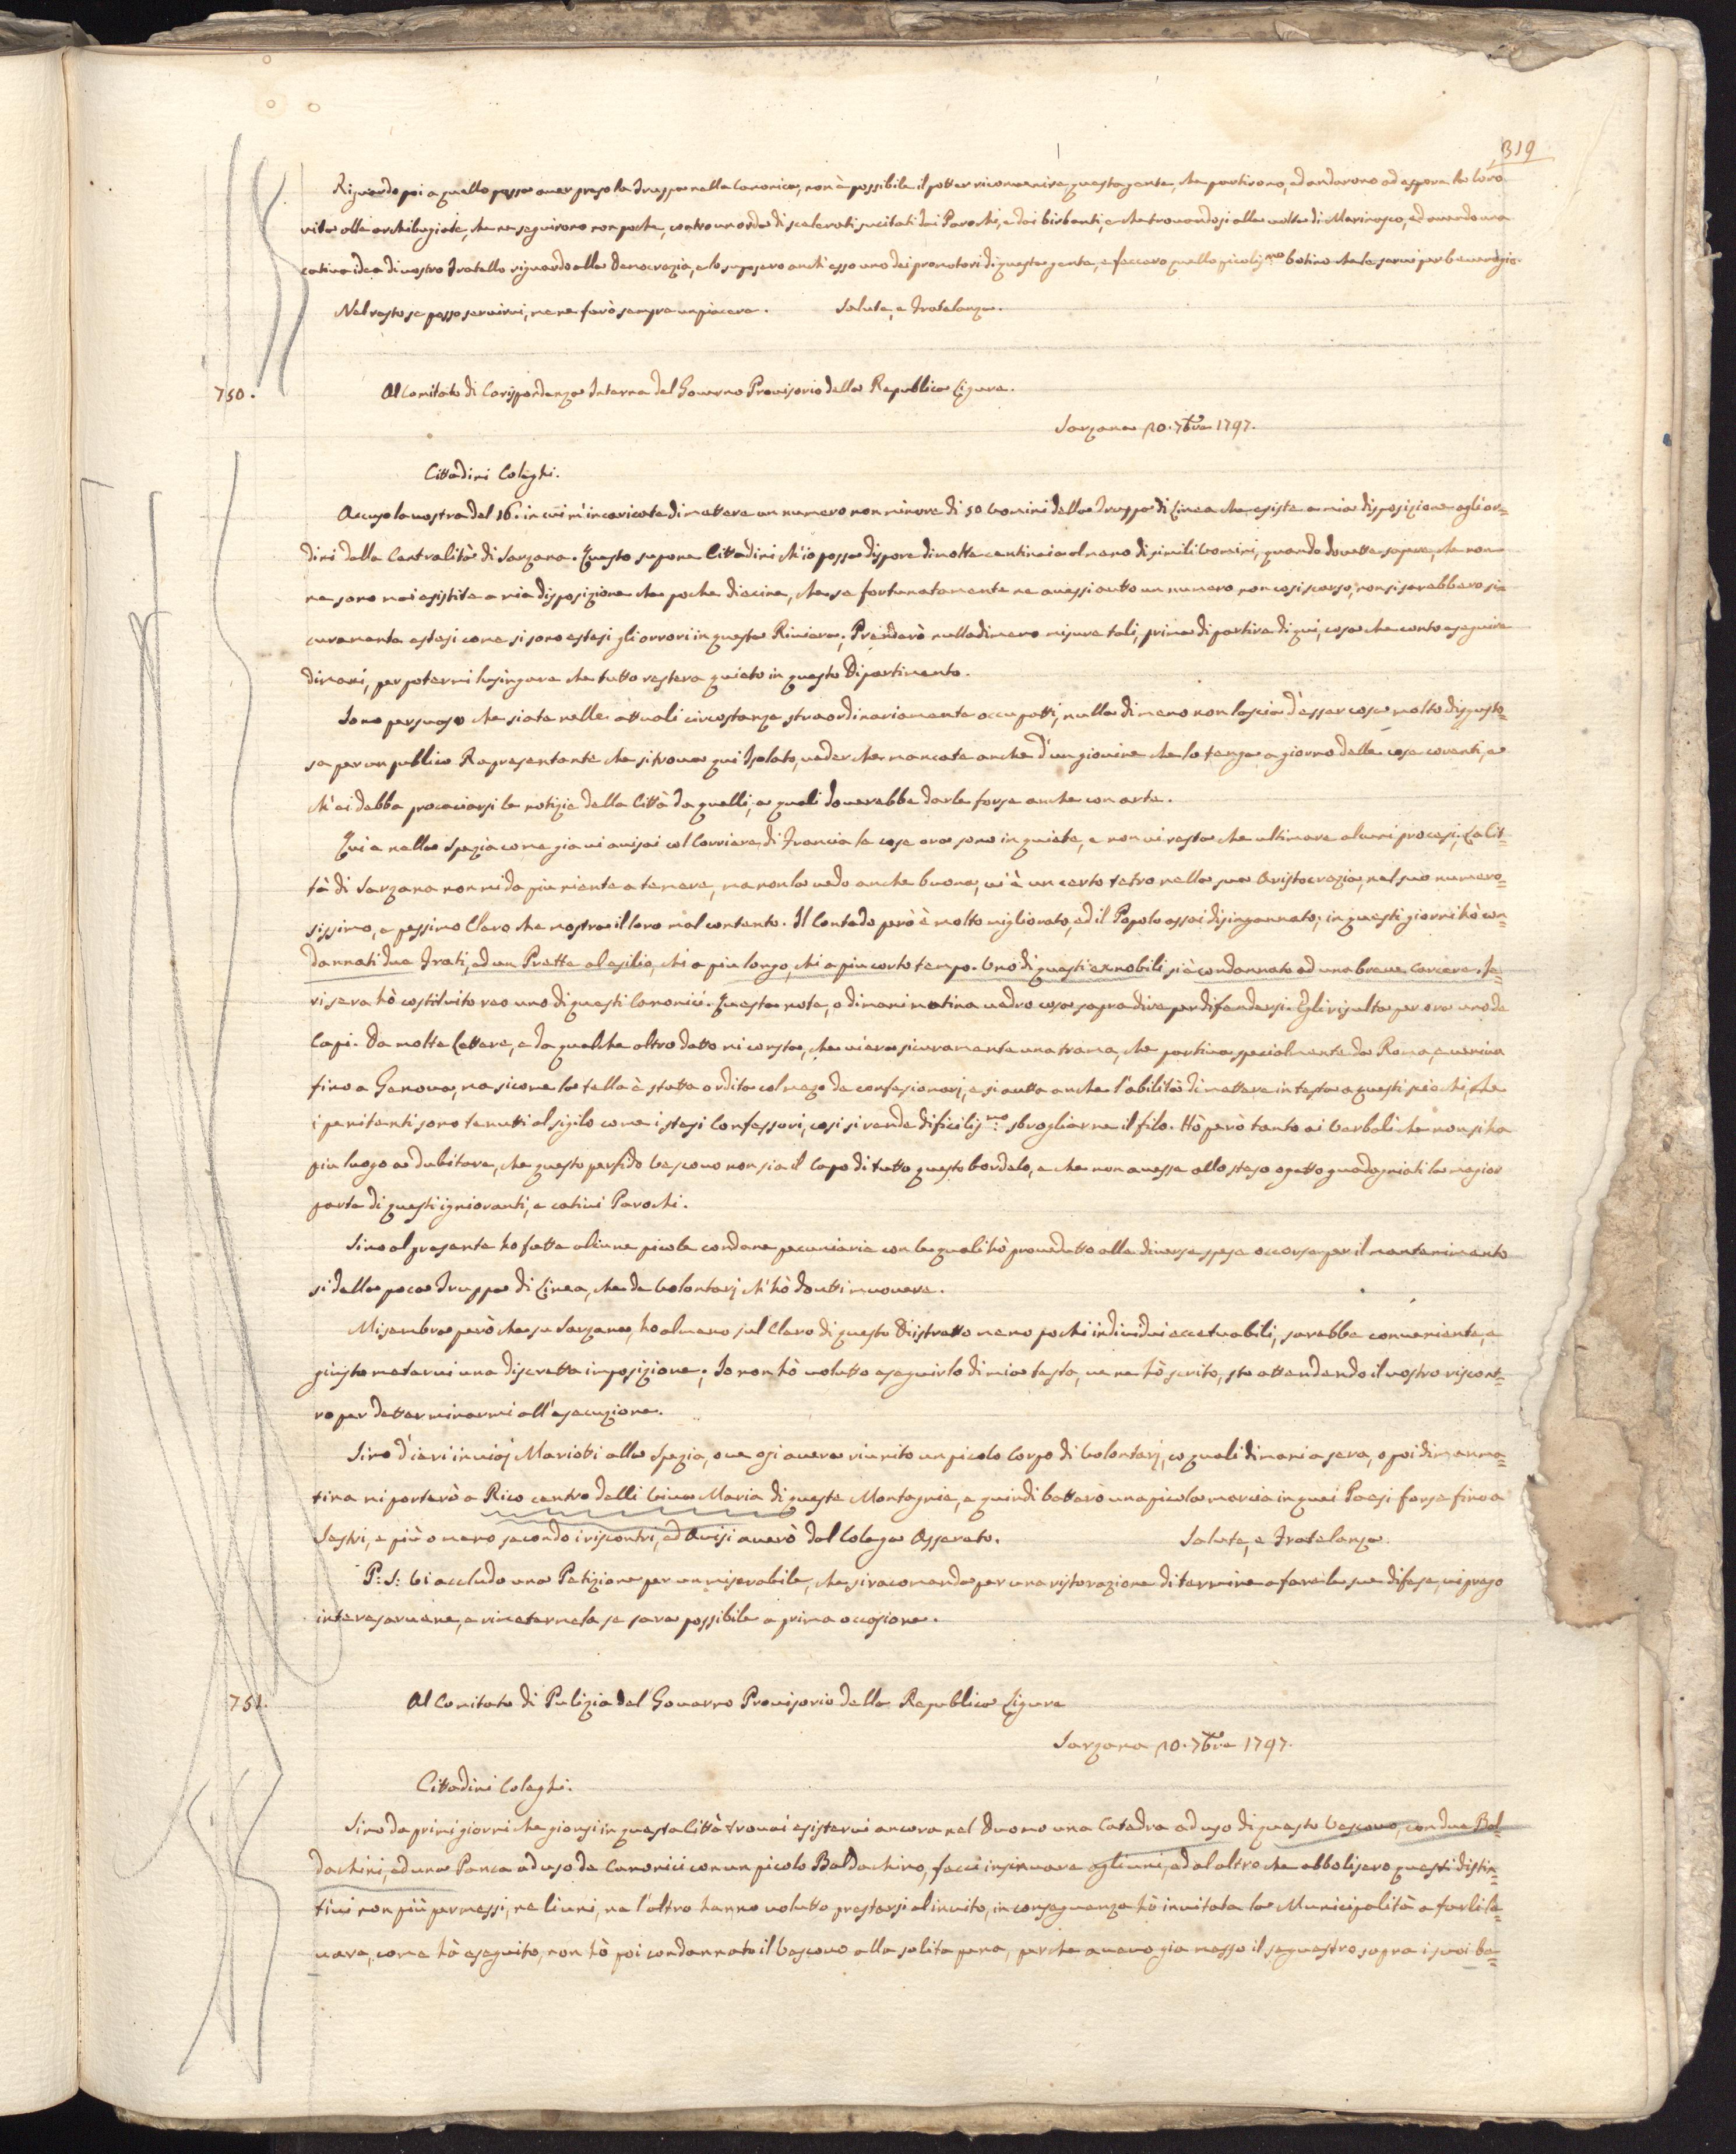 319
Riguardo poi a quello possa aver preso la Truppa nella Canonica, non è possibile il potter riconvenire questa gente, che partirono, ed andarono ad espore la loro
vita alle archibugiate, che ne seguirono non poche, contro un orda di scelerati sucitati dai Parochi, e dai birbanti, e che trovandosi alla volta di Marinasco, ed avendo una
cativa idea di vostro Fratello riguardo alla Democrazia, e lo suposero anch'esso uno dei promotori di questa gente, e feccero quello picolis.mo botino che le servì per beveragio.
Nel resto se posso servirvi, me ne farò sempre un piacere. Salute, e Fratelanza.
750. Al Comitato di Corispondenza Interna del Governo Provisorio della Republica Ligure.
Sarzana 20. 7bre 1797.
Cittadini Coleghi.
Accuso la vostra del 16. in cui m'incaricate di mettere un numero non minore di 50 Uomini della Truppa di Linea che esiste a mia disposizione agli or=
dini della Centralità di Sarzana. Questo supone Cittadini ch'io possa dispore di molte centinaia almeno di simili Uomini, quando dovette sapere, che non
ne sono mai esistite a mia disposizione che poche diecine, che se fortunatamente ne avessi avtto un numero non così scarso, non si sarebbero si=
curamente estesi come si sono estesi gli orrori in questa Riviera; Prenderò nulladimeno misure tali, prima di partire di qui, cosa che conto eseguire
dimani, per potermi lusingare che tutto restera quieto in questo Dipartimento.
Sono persuaso che siate nelle attuali circostanze straordinariamente occupatti, nulla di meno non lascia d'esser cosa molto disgusto=
sa per un publico Rapresentante che si trova qui Isolato, veder che mancate anche d'un giovine che lo tenga a giorno delle cose corenti, e
ch'ei debba procaciarsi le notizie della Città da quelli, a quali doverebbe darle forse anche con arte.
Qui e nella Spezia come gia vi avisai col Corriere di Francia le cose ora sono in quiete, e non vi resta che ultimare alcuni procesi; La Cit=
tà di Sarzana non mi da piu niente a temere, ma non la vedo anche buona, vi è un certo tetro nella sua Aristocrazia, nel suo numero=
sissimo, e pessimo Clero che mostra il loro mal contento. Il Contado però è molto migliorato, ed il Popolo assai disingannato; in questi giorni hò con=
dannati due Frati, ed un Prette al esilio, chi a piu longo, chi a piu corto tempo. Uno di questi exnobili si è condannato ad una breve Carcere. Ie=
ri sera hò costituito reo uno di questi Canonici. Questa note, o dimani matina vedro cosa sapra dire per difendersi. Egli risulta per ora uno de
Capi. Da molte Lettere, e da qualche altro datto mi consta, che vi era sicuramente una trama, che partiva specialmente da Roma, e veniva
fino a Genova, ma sicome la tella è statta ordita col mezo de confesionarj, e si avtta anche l'abilità di mettere in testa a questi sciochi, che
i penitenti sono tenutti al sigilo come i stesi Confessori, così si rende dificilis.mo sbrogliarne il filo. Hò però tanto ai Verbali che non si ha
piu luogo a dubitare, che questo perfido Vescovo non sia il Capo di tutto questo bordelo, e che non avesse allo steso ogetto guadagniati la magior
parte di questi ignioranti, e cativi Parochi.
Sino al presente ho fatte alcune picole condane pecuniarie con le quali hò provedutto alle diverse spese occorse per il mantenimento
si della poca Truppa di Linea, che de Volontarj ch'hò dovtti muovere.
Mi sembra però che su Sarzana, ho almeno sul Clero di questo Distretto meno pochi individui eccetuabili, sarebbe conveniente, e
giusto metervi una discretta imposizione; Io non hò voluto eseguirlo di mia testa, ve ne hò scrito, sto attendendo il vostro riscont=
ro per detterminarmi all'esecuzione.
Sino d'ieri inviai Mariotti alla Spezia, ove ogi avera riunito un picolo Corpo di Volontarj, co quali dimani a sera, o poi diman ma=
tina mi porterò a Rico centro delli Viva Maria di queste Montagnie, e quindi batterò una picola marcia in quei Paesi forse fino a
Sestri, e più o meno secondo i riscontri, ed Avisi averò dal Colega Assereto. Salute, e Fratelanza.
P: S: Vi accludo una Petizione per un miserabile, che si racomanda per una ristorazione di termine a fare le sue difese, vi prego
interesarvene, e rimetermela se sara possibile a prima occasione.
751. Al Comitato di Pulizia del Governo Provisorio della Republica Ligure
Sarzana 20. 7bre 1797.
Cittadini Coleghi.
Sino da primi giorni che giunsi in questa Città trovai esistervi ancora nel Duomo una Catedra ad uso di questo Vescovo, con due Bal=
dachini, ed una Panca ad uso de Canonici con un picolo Baldachino, feci insinuare agli uni, ed al altro che abbolisero questi distin=
tivi non più permessi, ne li uni, ne l'altro hanno volutto prestarsi al invito, in conseguenza hò invitata la Municipalità a farli le=
vare, come hà eseguito, non hò poi condannato il Vescovo alla solita pena, perche avevo gia messo il sequestro sopra i suoi be=